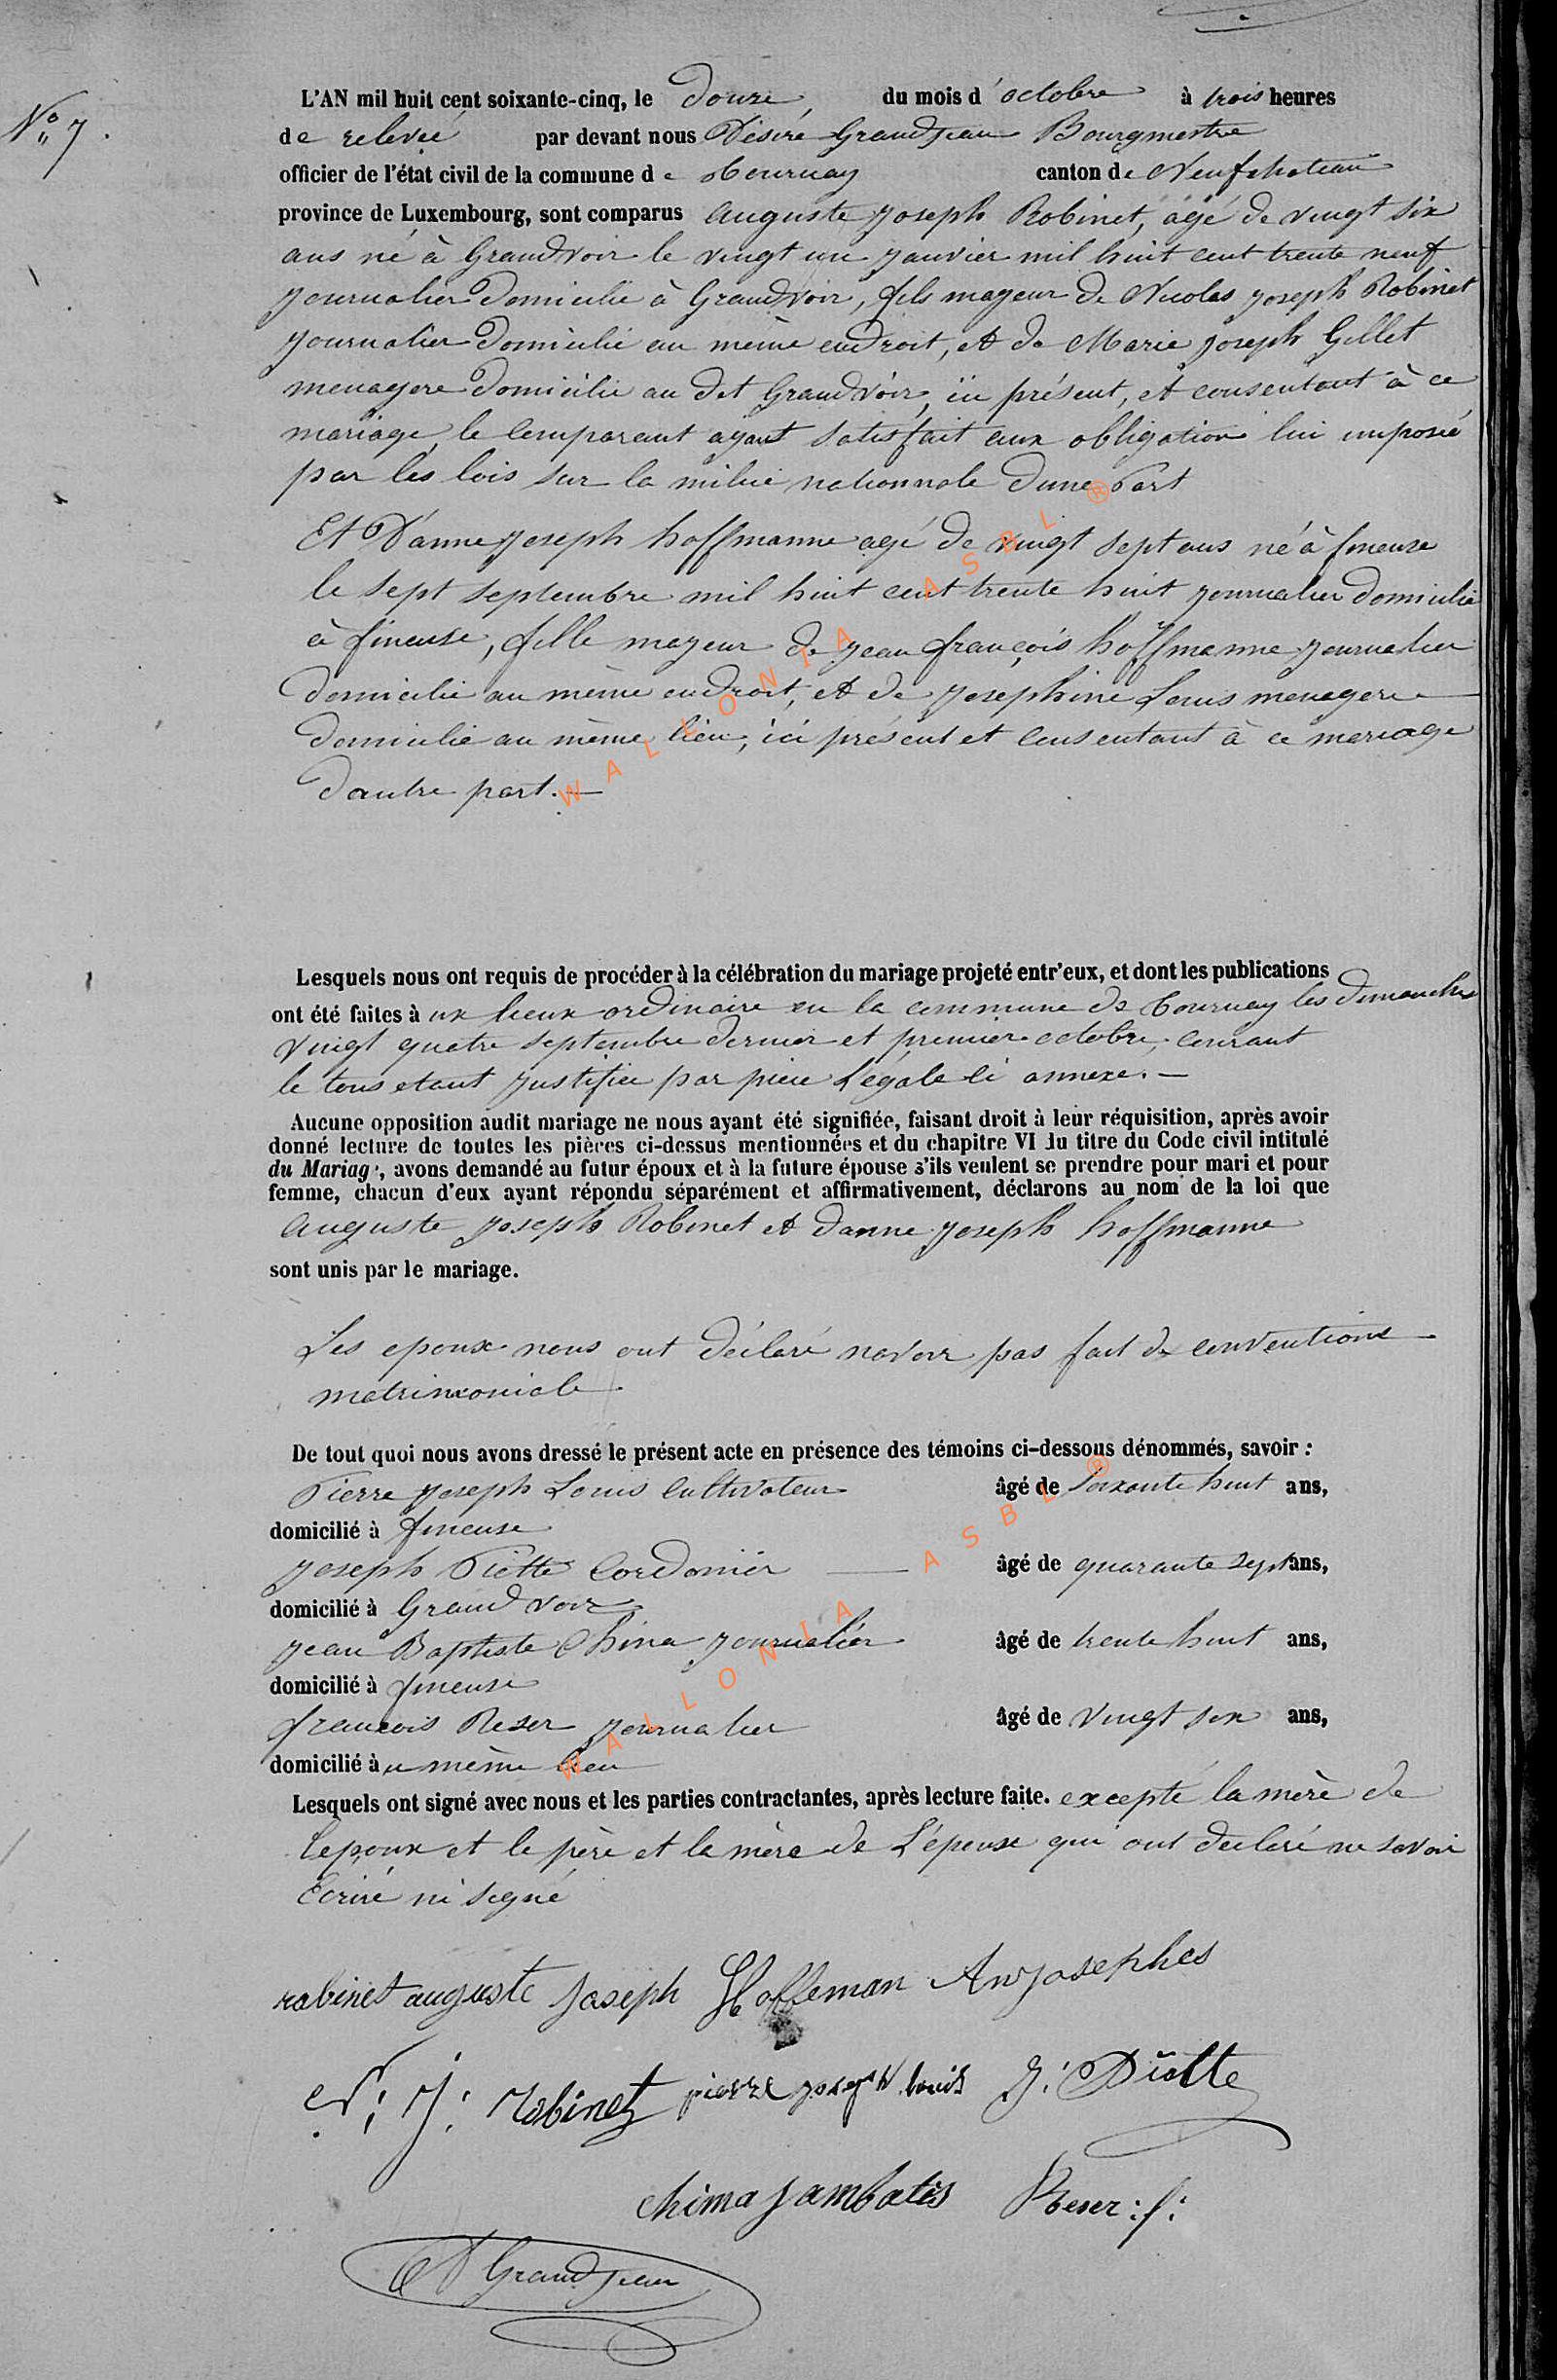 N° 7.
L'AN mil huit cent soixante-cinq, le douze, du mois d'octobre à trois heures
de relevée par devant nous Désiré Grandjean Bourgmestre
officier de l'état civil de la commune de Tournay canton de Neufchateau
province de Luxembourg, sont comparus auguste joseph Robinet, agé de vingt six
ans né à Grandvoir le vingt un janvier mil huit cent trente neuf
journalier domicilié à Grandvoir, fils majeur de Nicolas joseph Robinet
journalier domicilié au même endroit, et de Marie joseph Gillet
menagere domicilié au dit Grandvoir, ici présent, et consentant à ce
mariage, le comparant ayant satisfait aux obligation lui imposée
par les lois sur la milice nationnale dune Part
Et D'anne joseph hoffmanne agé de vingt sept ans né à fineuse
le sept septembre mil huit cent trente huit journalier domicilié
à fineuse, fille majeur de jean françois hoffmanne journalier
domicilié au même endroit, et de josephine Louis menagere
domicilié au même lieu, ici présent et consentant à ce mariage
dautre part.
Lesquels nous ont requis de procéder à la célébration du mariage projeté entr'eux, et dont les publications
ont été faites aux lieux ordinaire en la commune de Tournay les dimanches
vingt quatre septembre dernier et premier octobre, courant
le tous etant justifiée par pièce Légale ci annexe.
Aucune opposition audit mariage ne nous ayant été signifiée, faisant droit à leur réquisition, après avoir
donné lecture de toutes les pièces ci-dessus mentionnées et du chapitre VI du titre du Code civil intitulé
du Mariage, avons demandé au futur époux et à la future épouse s'ils veulent se prendre pour mari et pour
femme, chacun d'eux ayant répondu séparément et affirmativement, déclarons au nom de la loi que
auguste joseph Robinet et danne joseph hoffmanne
sont unis par le mariage.
Les epoux nous ont déclaré navoir pas fait de conventions
matrimoniale
De tout quoi nous avons dressé le présent acte en présence des témoins ci-dessous dénommés, savoir :
Pierre joseph Louis cultivateur âgé de soixante huit ans,
domicilié à fineuse
joseph Piette Cordonier âgé de quarante sept ans,
domicilié à Grand voir
jean Baptiste China journalier âgé de trente huit ans,
domicilié à fineuse
francois Reser journalier âgé de vingt six ans,
domicilié au même lieu
Lesquels ont signé avec nous et les parties contractantes, après lecture faite. excepté la mère de
lepoux et le père et la mère de L'épouse qui ont declaré ne savoir
Ecriré ni signé
robinet auguste joseph Hoffeman Anjosephes
N: J: Robinet pierre joseph louis J. Diotte
chima jambatis Reser: f:
D Grandjean
WALLONIA ASBL ®
WALLONIA ASBL ®